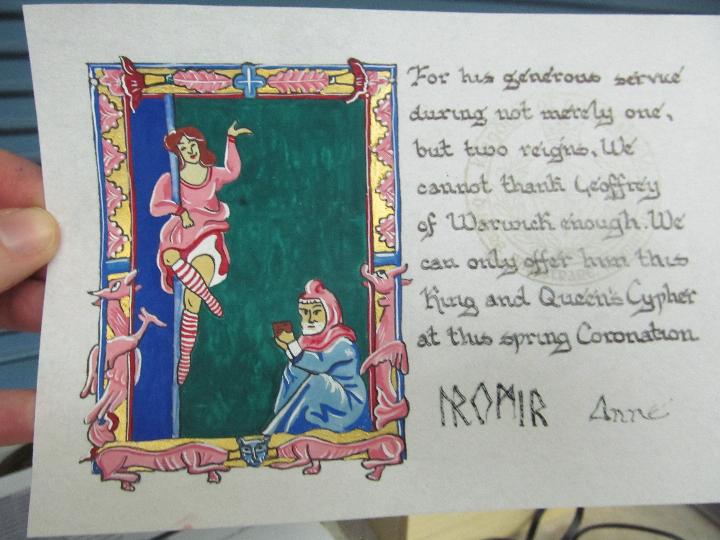 For his generous service
during not merely one,
but two reigns, We
cannot thank Geoffrey
of Warwick enough. We
can only offer him this
King and Queen's Cypher
at this spring Coronation
Anne